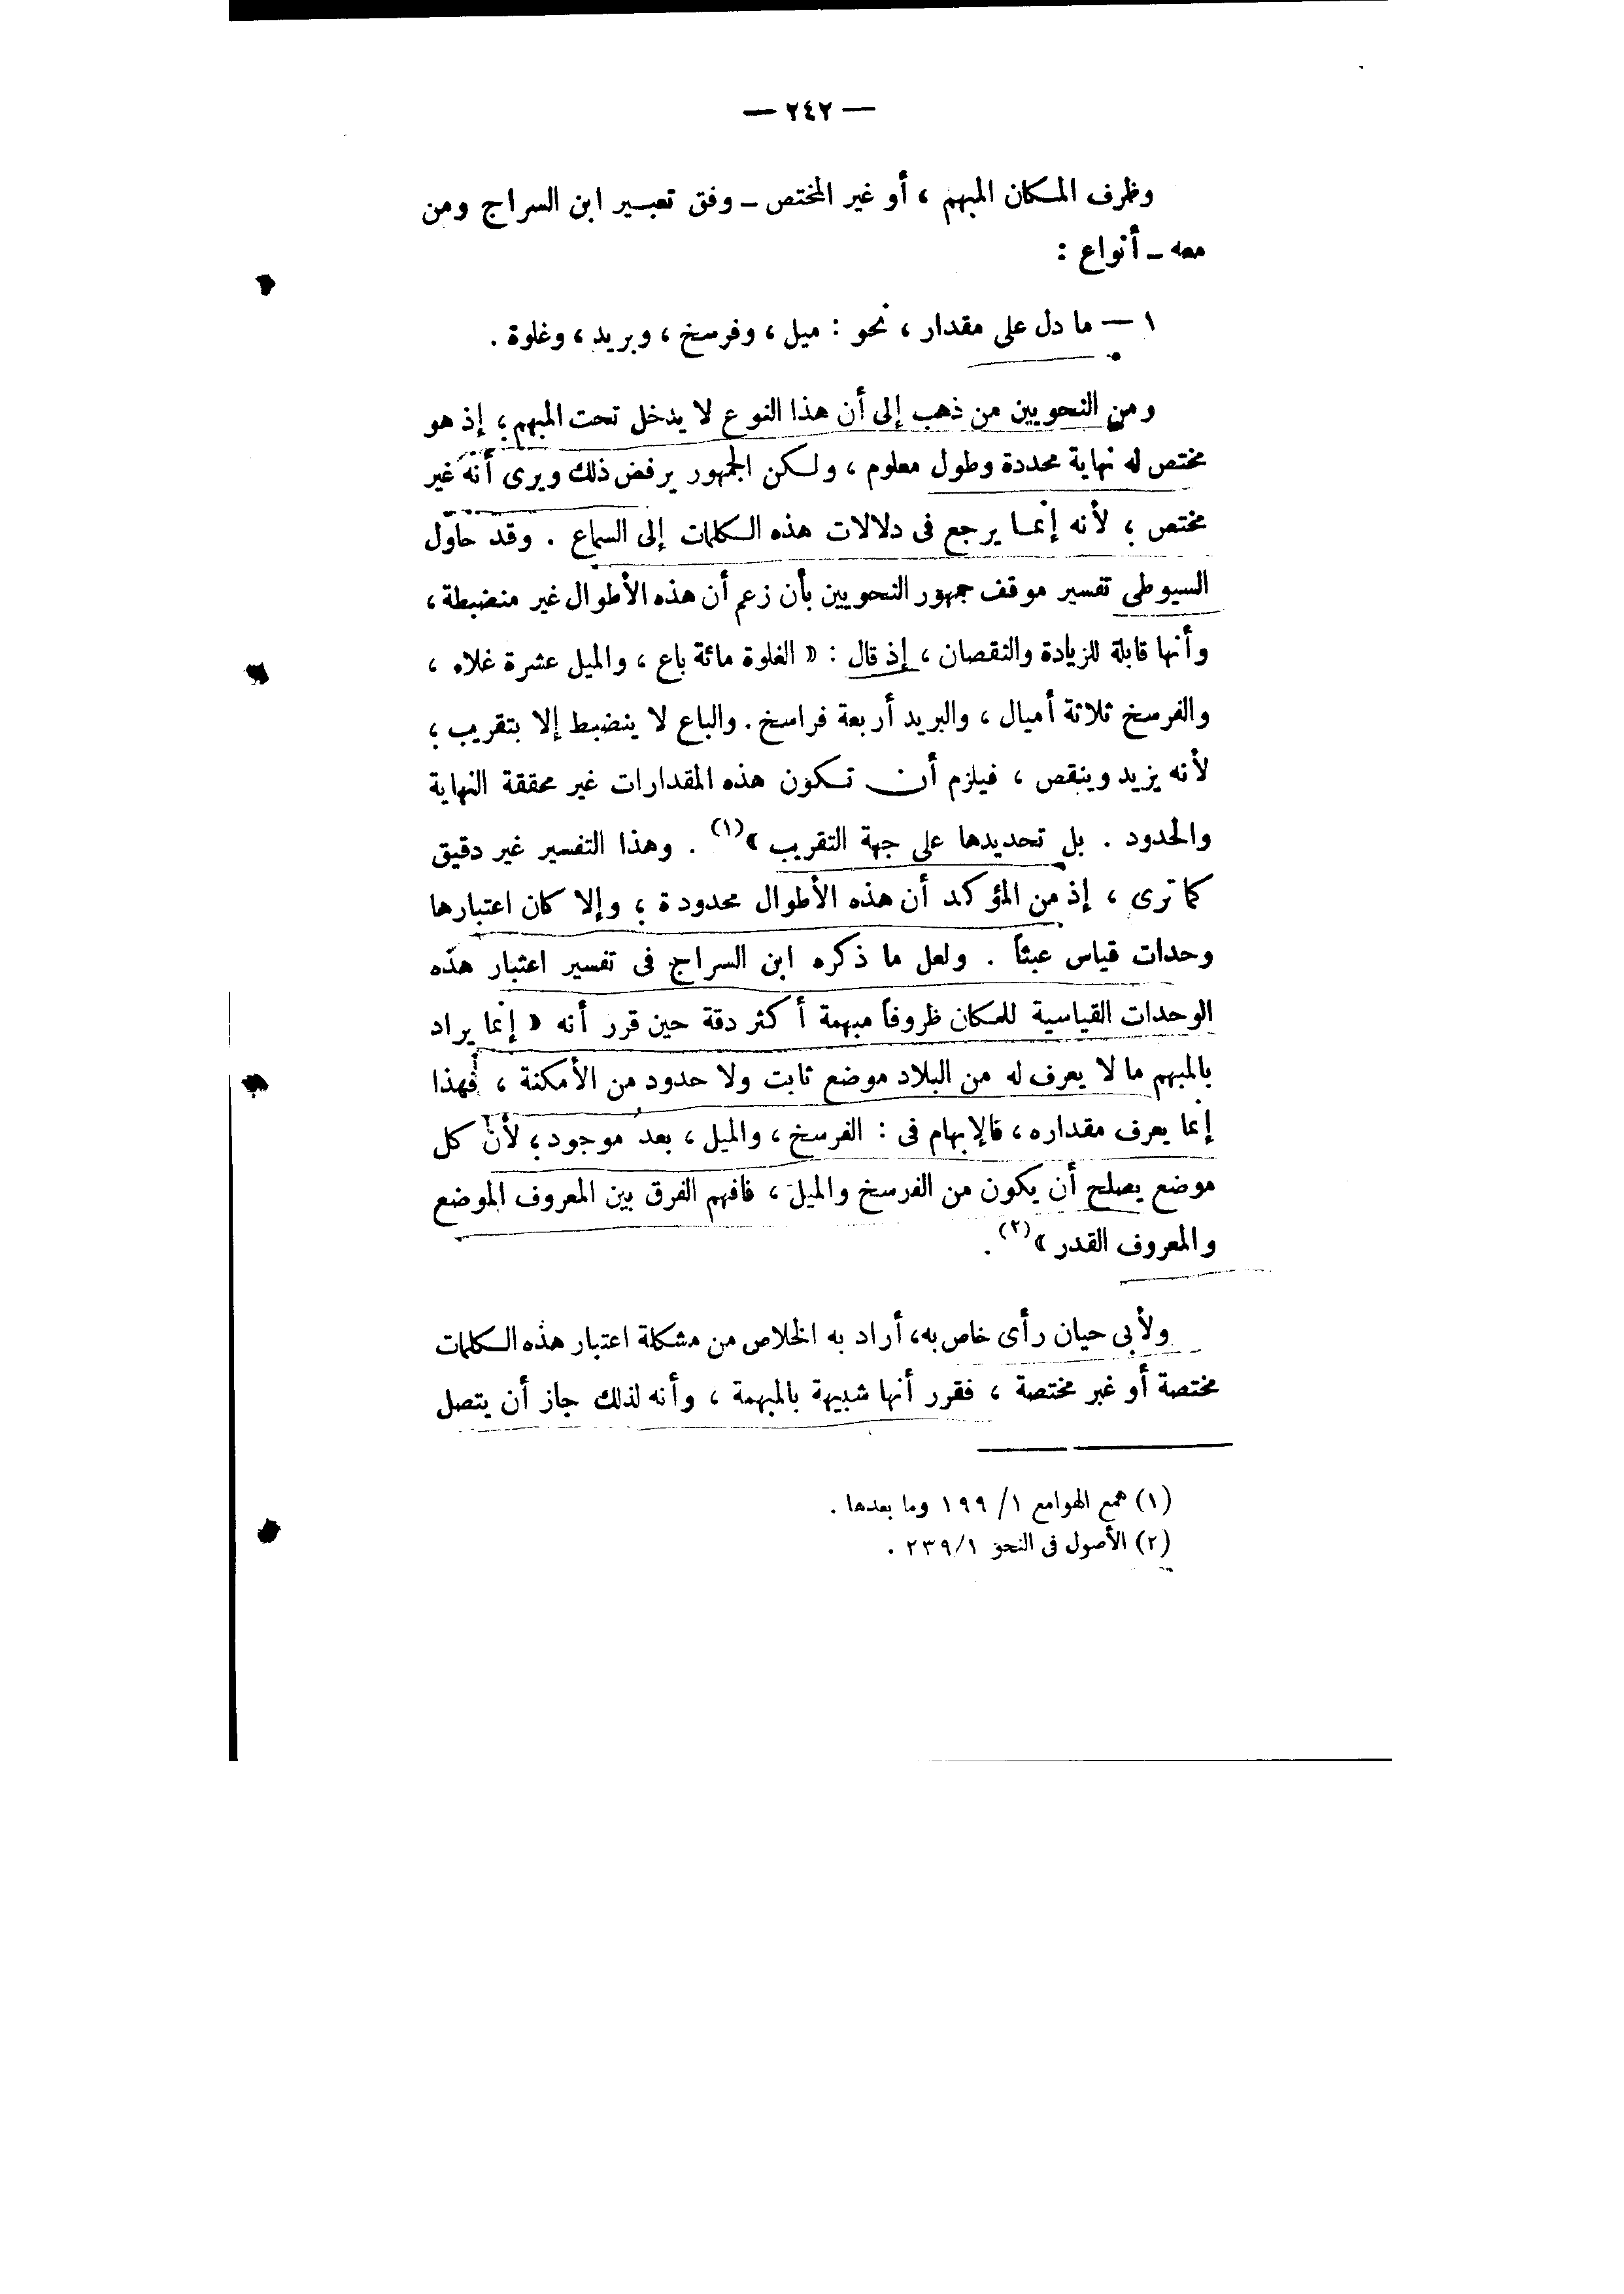 — ٢٤٢ —
وظرف المكان المبهم ، أو غير المختص ــ وفق تعبير ابن السراج ومن
معه ــ أنواع :
١ — ما دل على مقدار ، نحو : ميل ، وفرسخ ، وبريد ، وغلوة .
ومن النحويين من ذهب إلى أن هذا النوع لا يدخل تحت المبهم ؛ إذ هو
مختص له نهاية محددة وطول معلوم ، ولكن الجمهور يرفض ذلك ويرى أنه غير
مختص ؛ لأنه إنما يرجع فى دلالات هذه الكلمات إلى السماع . وقد حاول
السيوطى تفسير موقف جمهور النحويين بأن زعم أن هذه الأطوال غير منضبطة ،
وأنها قابلة للزيادة والنقصان ، إذ قال : « الغلوة مائة باع ، والميل عشرة غلاء ،
والفرسخ ثلاثة أميال ، والبريد أربعة فراسخ . والباع لا ينضبط إلا بتقريب ؛
لأنه يزيد وينقص ، فيلزم أن تكون هذه المقدارات غير محققة النهاية
والحدود . بل تحديدها على جهة التقريب »(١) . وهذا التفسير غير دقيق
كما ترى ، إذ من المؤكد أن هذه الأطوال محدودة ؛ وإلا كان اعتبارها
وحدات قياس عبثاً . ولعل ما ذكره ابن السراج فى تفسير اعتبار هذه
الوحدات القياسية للمكان ظروفاً مبهمة أكثر دقة حين قرر أنه « إنما يراد
بالمبهم ما لا يعرف له من البلاد موضع ثابت ولا حدود من الأمكنة ، فهذا
إنما يعرف مقداره ، فالإبهام فى : الفرسخ ، والميل ، بعد موجود ؛ لأن كل
موضع يصلح أن يكون من الفرسخ والميل ، فافهم الفرق بين المعروف الموضع
والمعروف القدر »(٢) .
ولأبى حيان رأى خاص به ، أراد به الخلاص من مشكلة اعتبار هذه الكلمات
مختصة أو غير مختصة ، فقرر أنها شبيهة بالمبهمة ، وأنه لذلك جاز أن يتصل
(١) همع الهوامع ١/ ١٩٩ وما بعدها .
(٢) الأصول فى النحو ٢٣٩/١ .